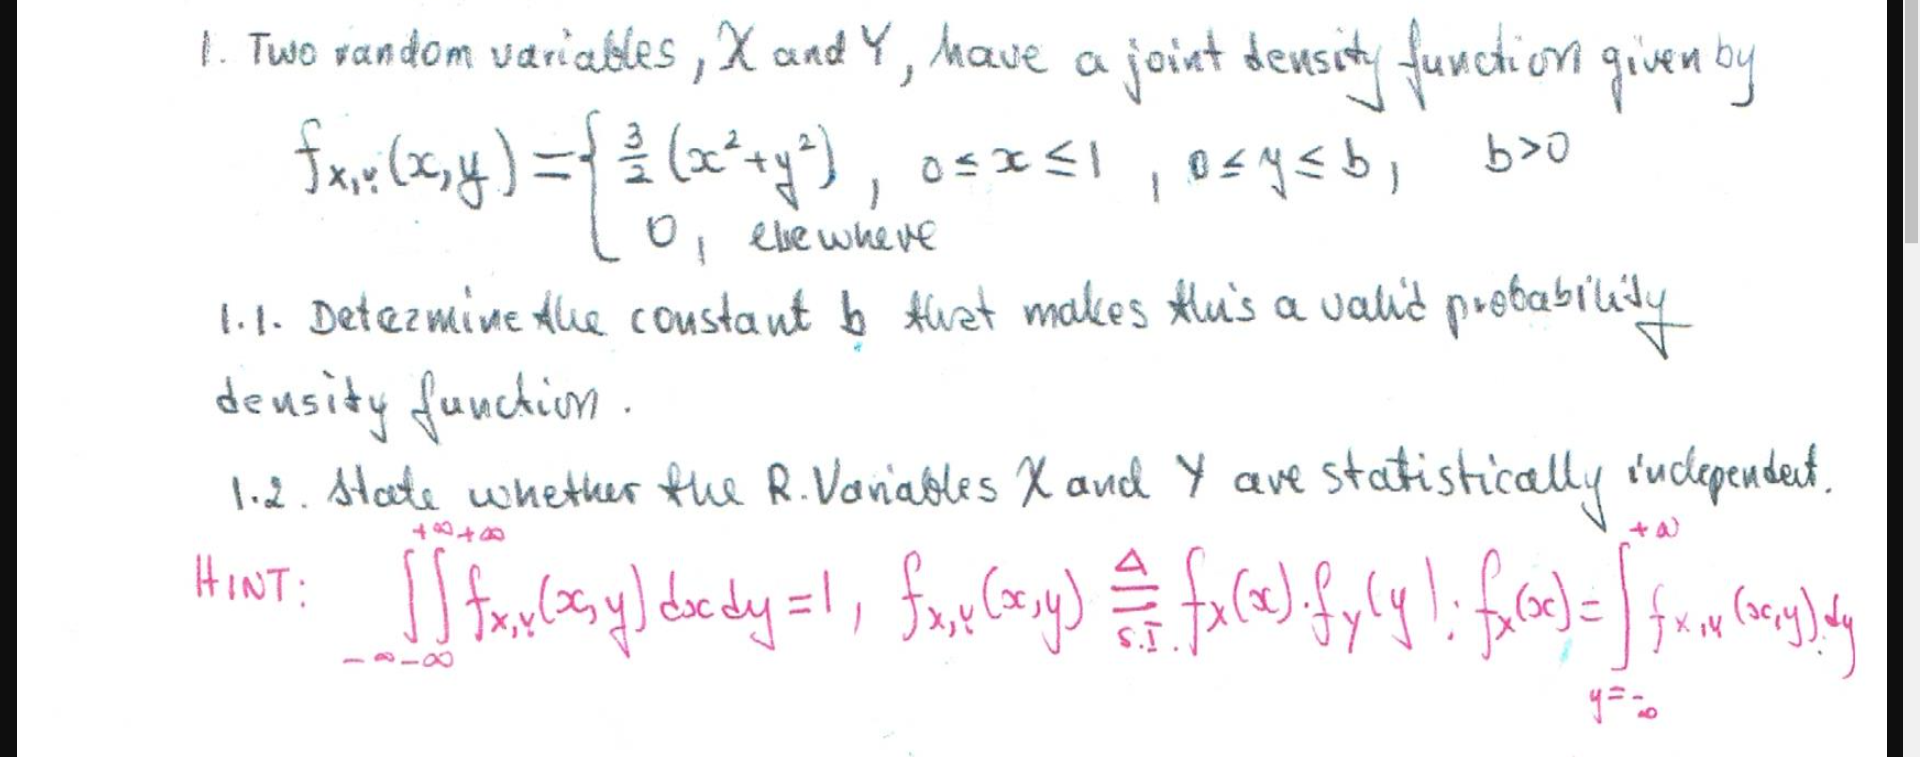 1. Two random variables, X and Y, have a joint density function given by
f_{X,Y}(x,y) = { 3/2 (x² + y²), 0 ≤ x ≤ 1, 0 ≤ y ≤ b, b>0
0, elsewhere
1.1. Determine the constant b that makes this a valid probability
density function.
1.2. State whether the R. Variables X and Y are statistically independent.
HINT: ∫_{-∞}^{+∞} ∫_{-∞}^{+∞} f_{X,Y}(x,y) dx dy = 1, f_{X,Y}(x,y) ≜_{S.I.} f_X(x)·f_Y(y); f_X(x) = ∫_{y=-∞}^{+∞} f_{X,Y}(x,y).dy